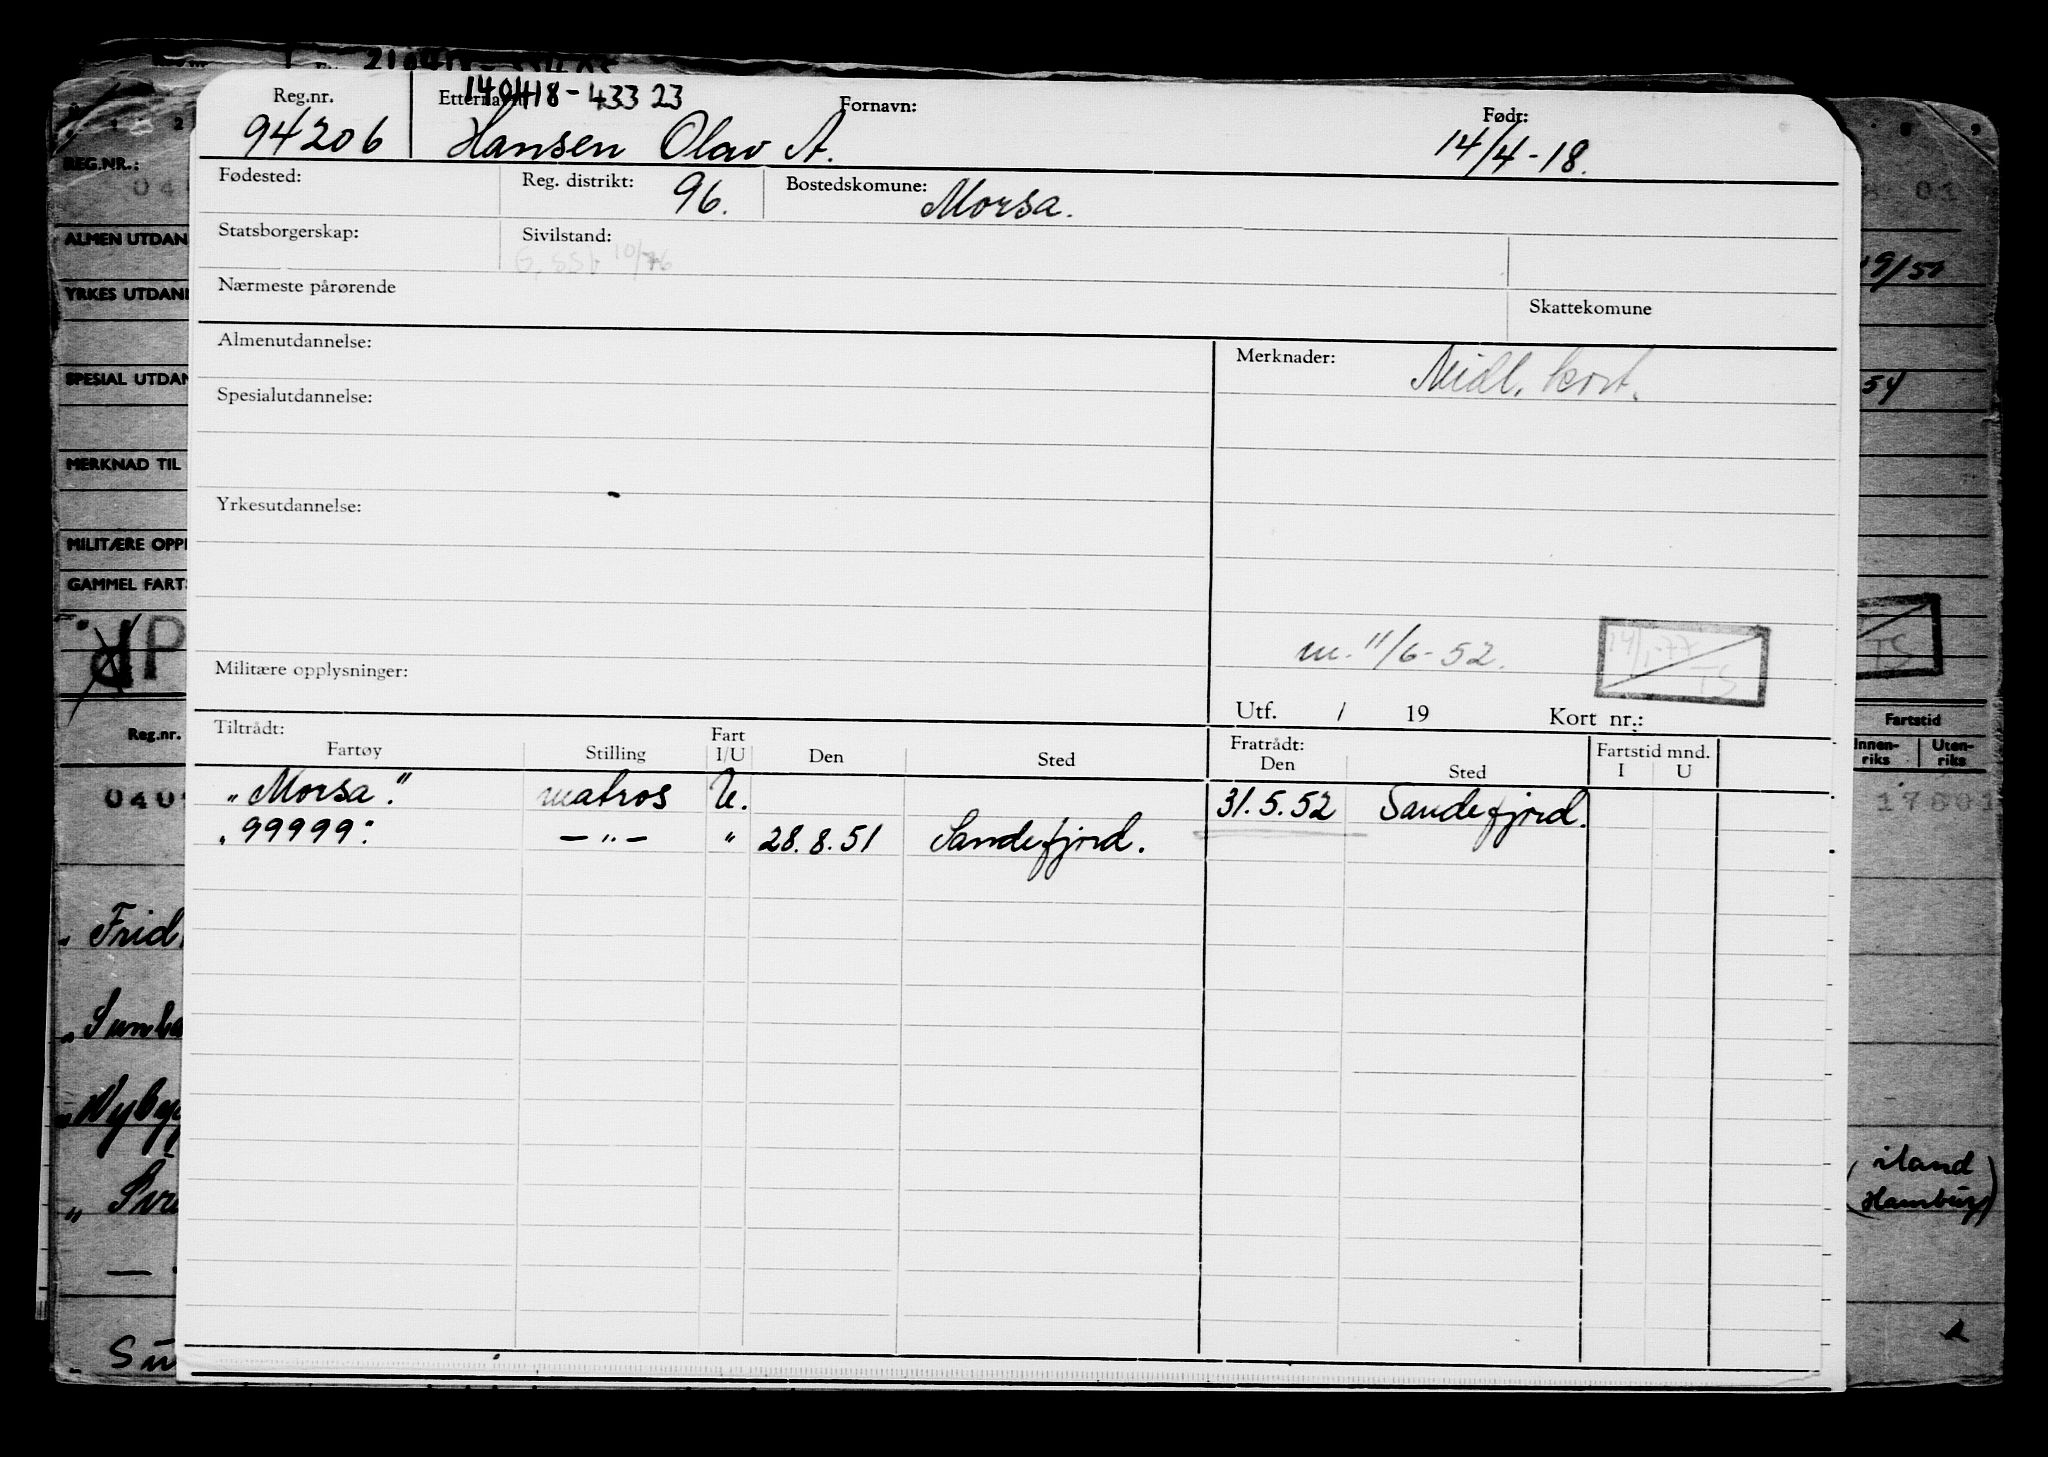 Reg.nr. Etternavn: 140418-43323 Fornavn: Født:
94206 Hansen Olav A. 14/4-18.
Fødested: Reg. distrikt: 96. Bostedskomune: Morsa.
Statsborgerskap: Sivilstand: 10/76
Nærmeste pårørende
Skattekomune
Almenutdannelse: Merknader: Midl. kort.
Spesialutdannelse:
Yrkesutdannelse:
m. 11/6-52. 14/1-77 TS
Militære opplysninger:
Utf. / 19 Kort nr.:
Tiltrådt: Fart Fratrådt: Fartstid mnd.
Fartøy Stilling I/U Den Sted Den Sted I U
"Morsa." matros U. 31.5.52 Sandefjord.
"99999" —"— " 28.8.51 Sandefjord.
REG.NR.:
ALMEN UTDAN
YRKES UTDAN
SPESIAL UTDAN
MERKNAD TIL
MILITÆRE OPP
GAMMEL FARTS
Reg.nr.
Frid
Su
01
54
TS
Fartstid
Innen-riks Uten-riks
(iland
Hamburg)